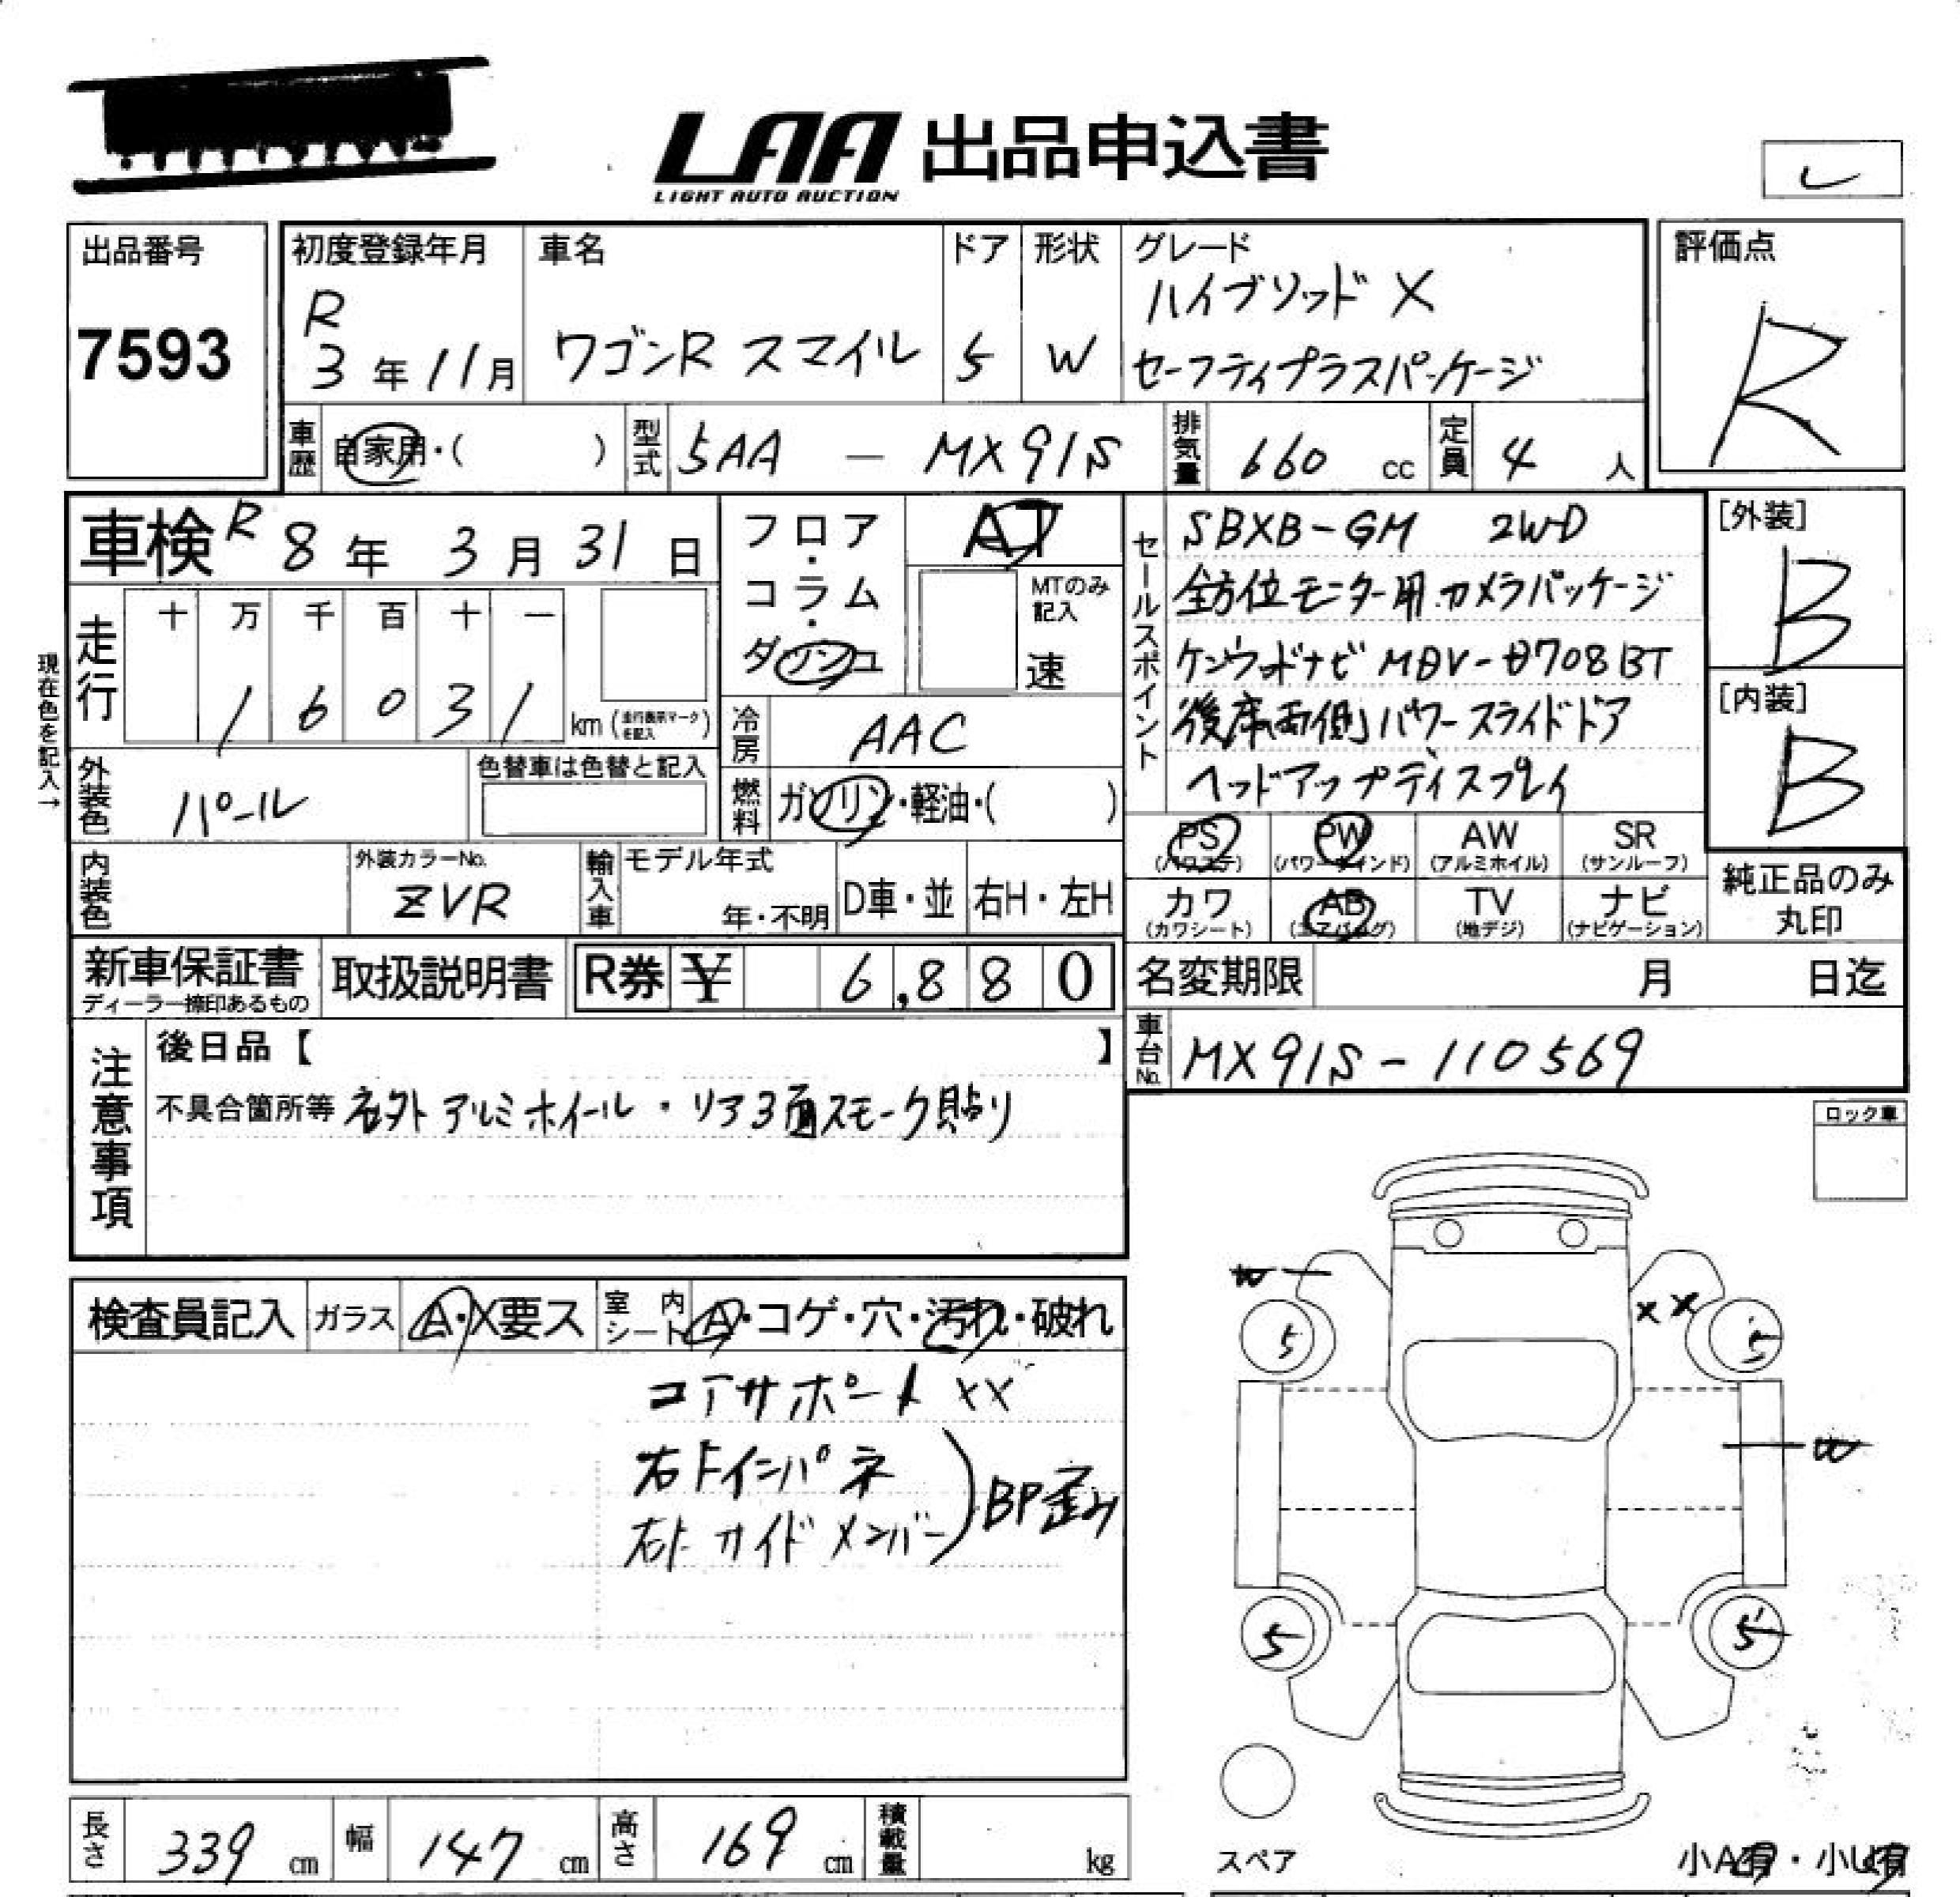 LAA 出品申込書
LIGHT AUTO AUCTION
レ
出品番号
7593
初度登録年月
R
3年11月
車名
ワゴンR スマイル
ドア
5
形状
W
グレード
ハイブリッド X
セーフティプラスパッケージ
評価点
R
車歴
自家用・( )
型式
5AA — MX91S
排気量
660 cc
定員
4 人
車検 R 8年 3月 31日
走行
十 万 千 百 十 一
1 6 0 3 1 km (走行表示マークを記入)
現在色を記入→
フロア・コラム・ダ インコ
AT
MTのみ記入
速
冷房
AAC
燃料
ガソリン・軽油・( )
外装色
パール
色替車は色替と記入
内装色
外装カラーNo.
ZVR
輸入車
モデル年式
年・不明
D車・並
右H・左H
セールスポイント
SBXB-GM 2WD
全方位モニター用カメラパッケージ
ケンウッドナビ
後席両側パワースライドドア
ヘッドアップディスプレイ
[外装]
B
[内装]
B
PS (パワステ)
PW (パワーウインド)
AW (アルミホイル)
SR (サンルーフ)
カワ (カワシート)
AB (エアバッグ)
TV (地デジ)
ナビ (ナビゲーション)
純正品のみ丸印
新車保証書
ディーラー捺印あるもの
取扱説明書
R券 ¥ 6,880
名変期限 月 日迄
車台No.
MX91S-110569
注意事項
後日品【 】
不具合箇所等 社外アルミホイール・リア3面スモーク貼り
ロック車
検査員記入
ガラス
A・X要ス
室内シート
A・コゲ・穴・汚れ・破れ
コアサポート XX
右Fインパネ
右Fサイドメンバー
BP歪み
W
XX
5
5
W
5
5
スペア
小A有・小U有
長さ
339 cm
幅
147 cm
高さ
169 cm
積載量
kg